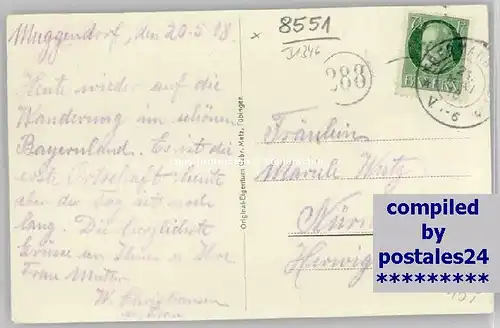 Muggendorf, den 20.5.18.
Heute wieder auf die
Wanderung im schönen
Bayernland. Es ist die
erste Ortschaft heute
aber der Tag ist noch
lang. Die herzlichste
Grüsse an Ihnen u Ihre
Frau Mutter
W. Christiansen
u. Frau
Original-Eigentum Gebr. Metz, Tübingen
x 8551
J1346
288
7½
BAYERN
Fräulein
Nür
compiled
by
postales24
*********